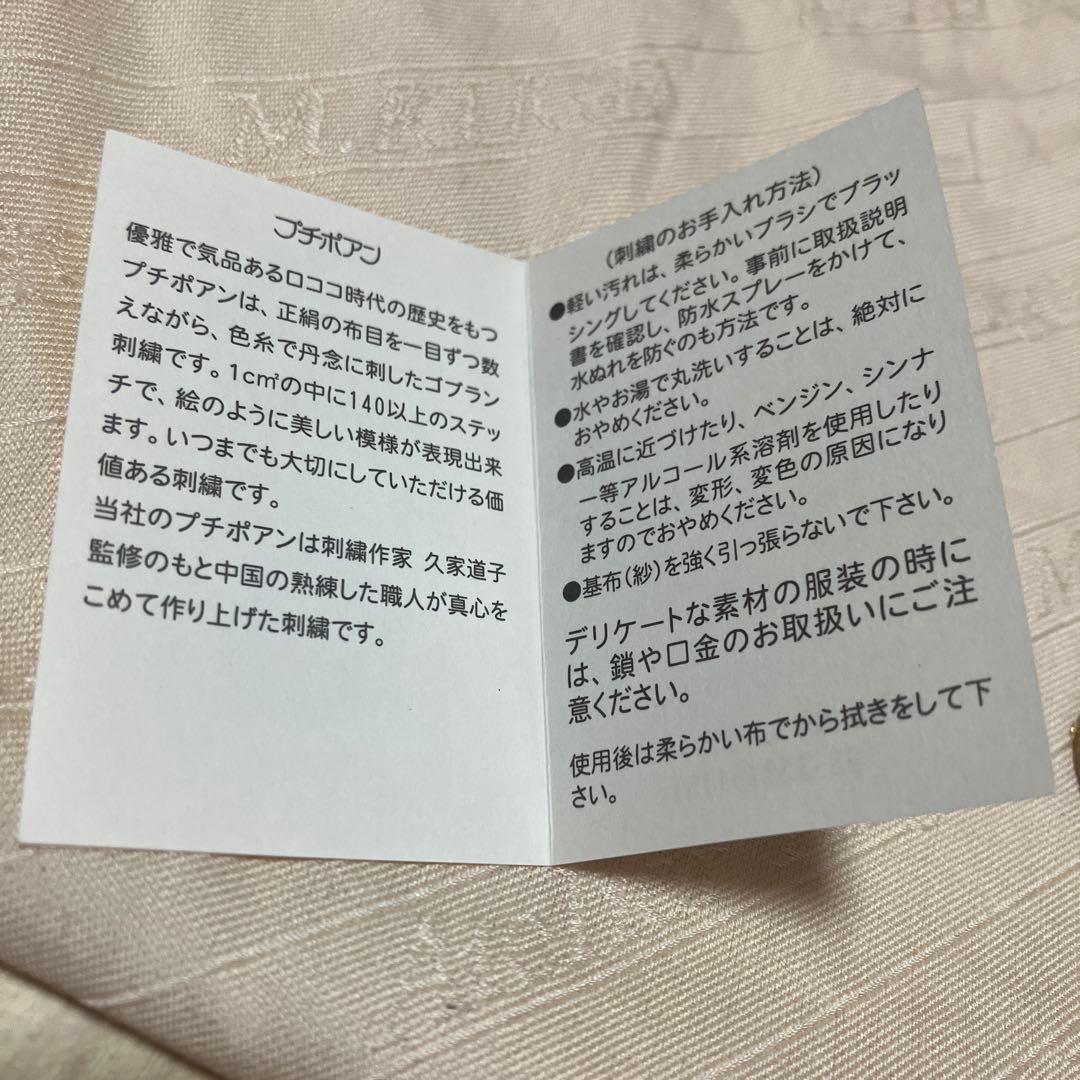 プチポアン
優雅で気品あるロココ時代の歴史をもつ
プチポアンは、正絹の布目を一目ずつ数
えながら、色糸で丹念に刺したゴブラン
刺繍です。1c㎡の中に140以上のステッ
チで、絵のように美しい模様が表現出来
ます。いつまでも大切にしていただける価
値ある刺繍です。
当社のプチポアンは刺繍作家 久家道子
監修のもと中国の熟練した職人が真心を
こめて作り上げた刺繍です。
(刺繍のお手入れ方法)
●軽い汚れは、柔らかいブラシでブラッ
シングしてください。事前に取扱説明
書を確認し、防水スプレーをかけて、
水ぬれを防ぐのも方法です。
●水やお湯で丸洗いすることは、絶対に
おやめください。
●高温に近づけたり、ベンジン、シンナ
ー等アルコール系溶剤を使用したり
することは、変形、変色の原因になり
ますのでおやめください。
●基布(紗)を強く引っ張らないで下さい。
デリケートな素材の服装の時に
は、鎖や口金のお取扱いにご注
意ください。
使用後は柔らかい布でから拭きをして下
さい。